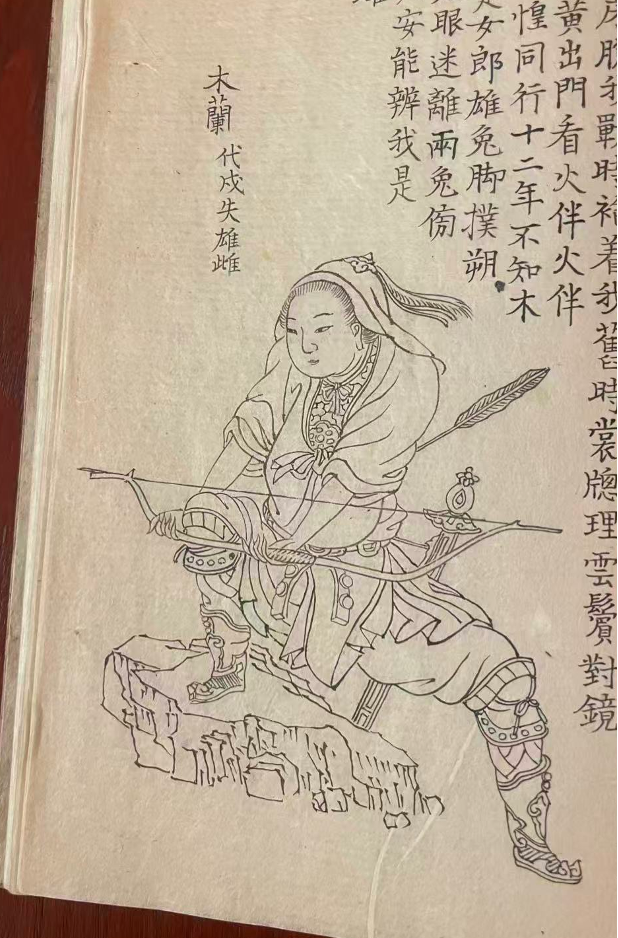 脫我戰時袍着我舊時裳牕理雲鬢對鏡
黄出門看火伴火伴
惶同行十二年不知木
是女郎雄兔脚撲朔
眼迷離兩兔傍
安能辨我是
木蘭 代戍失雄雌